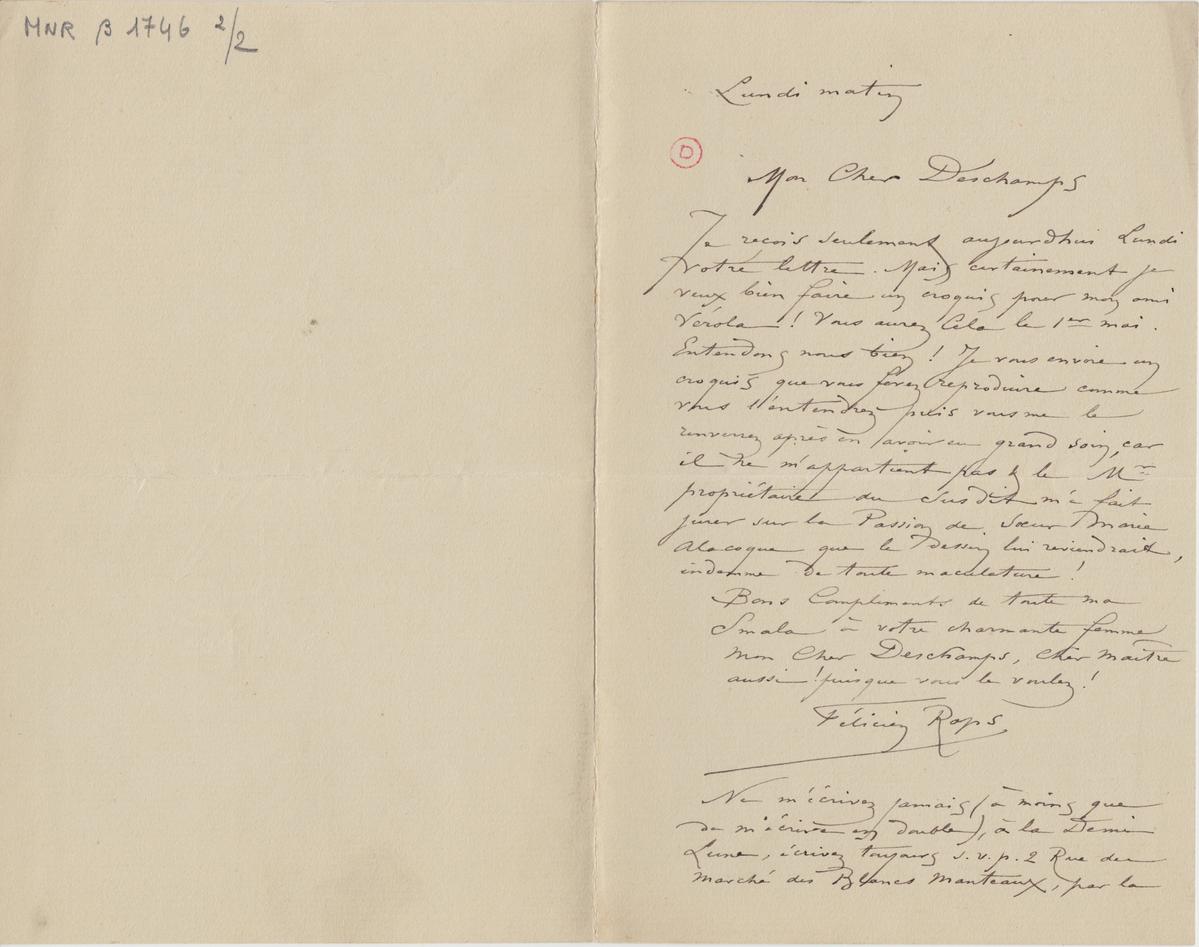 MNR β 1746 2/2
Lundi matin
D
Mon Cher Deschamps
Je reçois seulement aujourd'hui Lundi
votre lettre. Mais certainement je
veux bien faire un croquis pour mon ami
Vérola ! Vous aurez Cela le 1er mai.
Entendons nous bien ! Je vous envoie un
croquis que vous ferez reproduire comme
vous l'entendrez puis vous me le
renverrez après en avoir eu grand soin, car
il ne m'appartient pas & le Mr
propriétaire du susdit m'a fait
jurer sur la Passion de Sœur Marie
Alacoque que le dessin lui reviendrait,
indemne de toute maculature !
Bons Compliments de toute ma
Smala à votre charmante femme
mon Cher Deschamps, cher maître
aussi ! puisque vous le voulez !
Félicien Rops
Ne m'écrivez jamais (à moins que
de m'écrire en double), à la Demi
Lune, écrivez toujours s.v.p. 2 Rue du
marché des Blancs Manteaux, par la